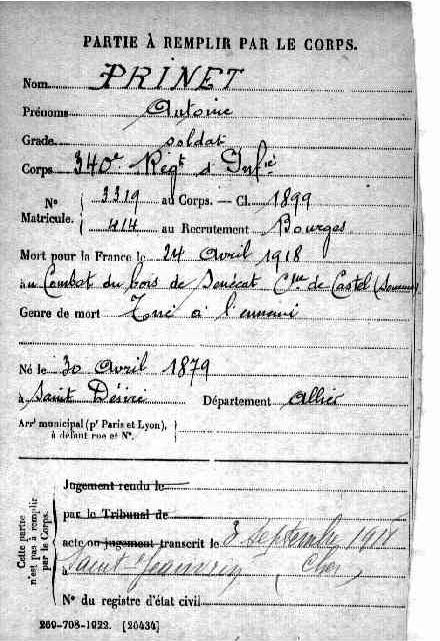 PARTIE À REMPLIR PAR LE CORPS.
Nom PRINET
Prénoms Antoine
Grade soldat
Corps 340e Regt d'Infie
N° 3319 au Corps. — Cl. 1899
Matricule. 414 au Recrutement Bourges
Mort pour la France le 24 Avril 1918
au Combat du bois de Senécat Cne de Castel (Somme)
Genre de mort Tué à l'ennemi
Né le 30 Avril 1879
à Saint Désiré Département Allier
Arrt municipal (pr Paris et Lyon),
à défaut rue et N°.
Cette partie
n'est pas à remplir
par le Corps.
Jugement rendu le
par le Tribunal de
acte ou jugement transcrit le 3 septembre 1918
à Saint (Cher)
N° du registre d'état civil
269-708-1922. [26434]